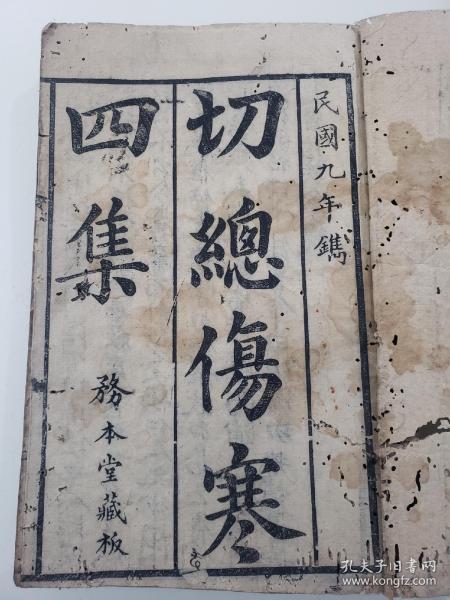 民國九年鐫
切總傷寒
四集
務本堂藏板
孔夫子旧书网
www.kongfz.com